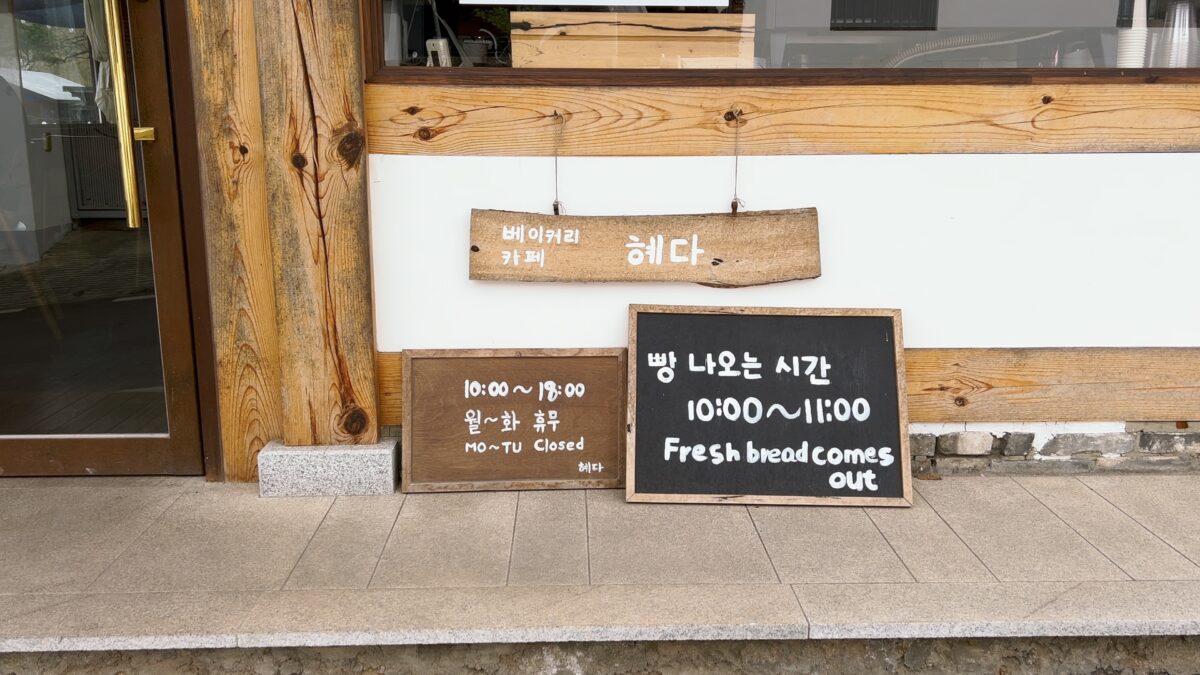 베이커리
카페
혜다
10:00~18:00
월~화 휴무
MO~TU Closed
혜다
빵 나오는 시간
10:00~11:00
Fresh bread comes
out